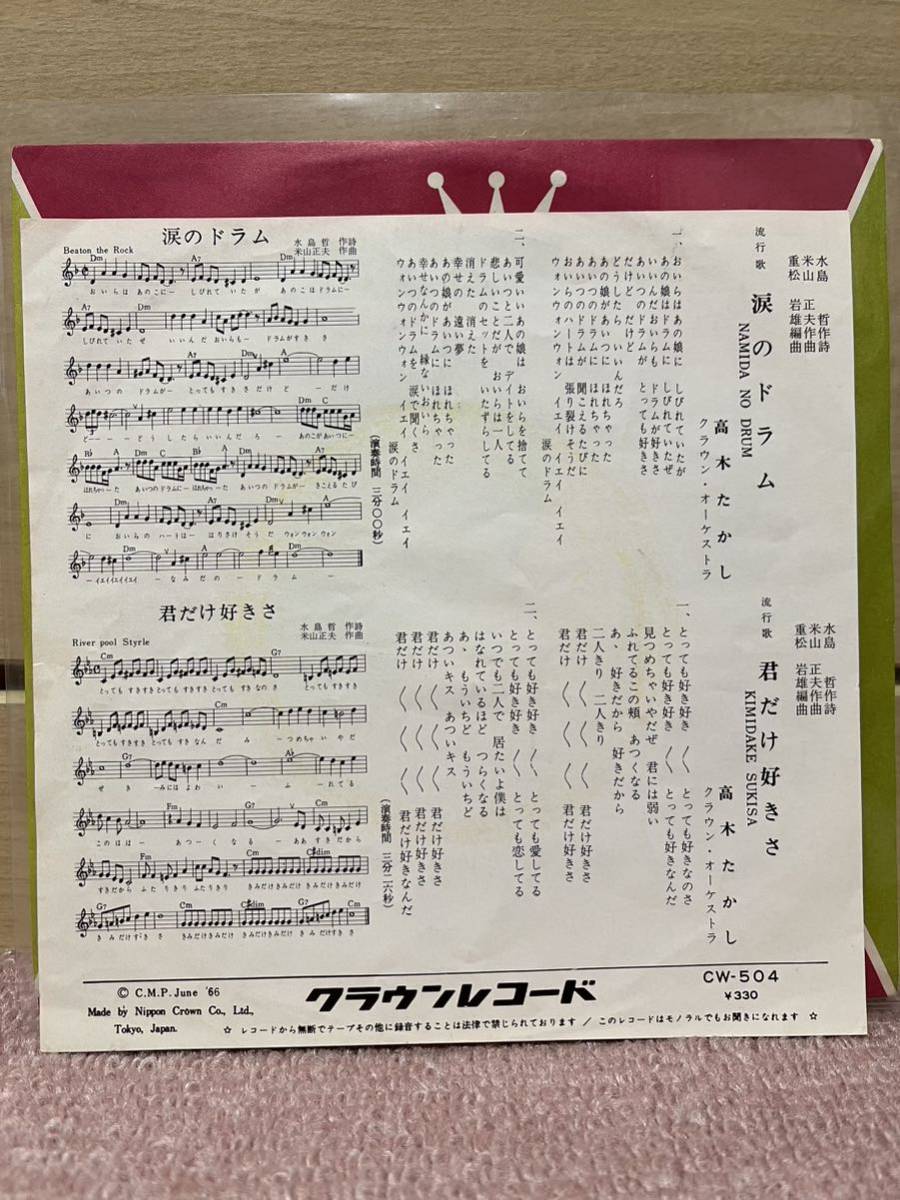 涙のドラム
水島哲 作詩
米山正夫 作曲
Beaton the Rock
おいらは あのこに― しびれて いたが あのこはドラムに―
しびれて いたぜ いいんだ おいらも― ドラムがすき さ
あいつの ドラムが― とっても すき さ だけ ど― だけ
ど― どうしたら いいんだ ろ― あのこがあいつに―
ほれちゃった あいつのドラムに― ほれちゃった あいつの ドラムが― きこえるたび
に おいらの ハートは― はりさけ そうだ ウォン ウォン ウォン
―イエイイエイイエイ ―なみだの ―ドラム―
君だけ好きさ
水島哲 作詩
米山正夫 作曲
River pool Styrle
とっても すきすき とっても すきすき とっても すきなのさ とっても すきすき
とっても すきすき とっても すきなんだ み―つめちゃ いやだ
ぜ き―みには よわい― ふ―れてる
このほほ― あつ―く なる― ああ すきだから
すきだから ふたりきり ふたりきり きみだけ きみだけ きみだけ きみだけ
きみだけ すきさ きみだけ きみだけ きみだけ きみだけ きみだけ すきさ
水島 哲作詩
米山 正夫作曲
重松 岩雄編曲
流行歌 涙のドラム
NAMIDA NO DRUM
高木たかし
クラウン・オーケストラ
一、おいらはあの娘に しびれていたが
あの娘はドラムに しびれていたぜ
いいんだおいらも ドラムが好きさ
あいつのドラムが とっても好きさ
だけど だけど
どうしたら いいんだろ
あの娘があいつに ほれちゃった
あいつのドラムに ほれちゃった
あいつのドラムが 聞こえるたびに
おいらのハートは 張り裂けそうだ
ウォンウォンウォン イエイ イエイ イエイ
涙のドラム
二、可愛いい あの娘は おいらを捨てて
あいつと二人で デイトをしてる
悲しいことだが おいらは一人
ドラムのセットを いたずらしてる
消えた 消えた
幸せの 遠い夢
あの娘があいつに ほれちゃった
あいつのドラムに ほれちゃった
幸せなんかに 縁ないおいら
あいつのドラムを 涙で聞くさ
ウォンウォンウォン イエイ イエイ イエイ
涙のドラム
(演奏時間 三分〇〇秒)
水島 哲作詩
米山 正夫作曲
重松 岩雄編曲
流行歌 君だけ好きさ
KIMIDAKE SUKISA
高木たかし
クラウン・オーケストラ
一、とっても好き好き 〱 とっても好きなのさ
とっても好き好き 〱 とっても好きなんだ
見つめちゃいやだぜ 君には弱い
ふれてるこの頬 あつくなる
あゝ 好きだから 好きだから
二人きり 二人きり
君だけ 〱 〱 君だけ好きさ
君だけ 〱 〱 君だけ好きさ
二、とっても好き好き 〱 とっても愛してる
とっても好き好き 〱 とっても恋してる
いつでも二人で 居たいよ僕は
はなれているほど つらくなる
あゝ もういちど もういちど
あついキス あついキス
君だけ 〱 〱 君だけ好きさ
君だけ 〱 〱 君だけ好きさ
君だけ 〱 〱 君だけ好きなんだ
(演奏時間 三分二六秒)
© C.M.P. June '66
Made by Nippon Crown Co., Ltd.,
Tokyo, Japan.
クラウンレコード
CW-504
¥330
☆ レコードから無断でテープその他に録音することは法律で禁じられております / このレコードはモノラルでもお聞きになれます ☆